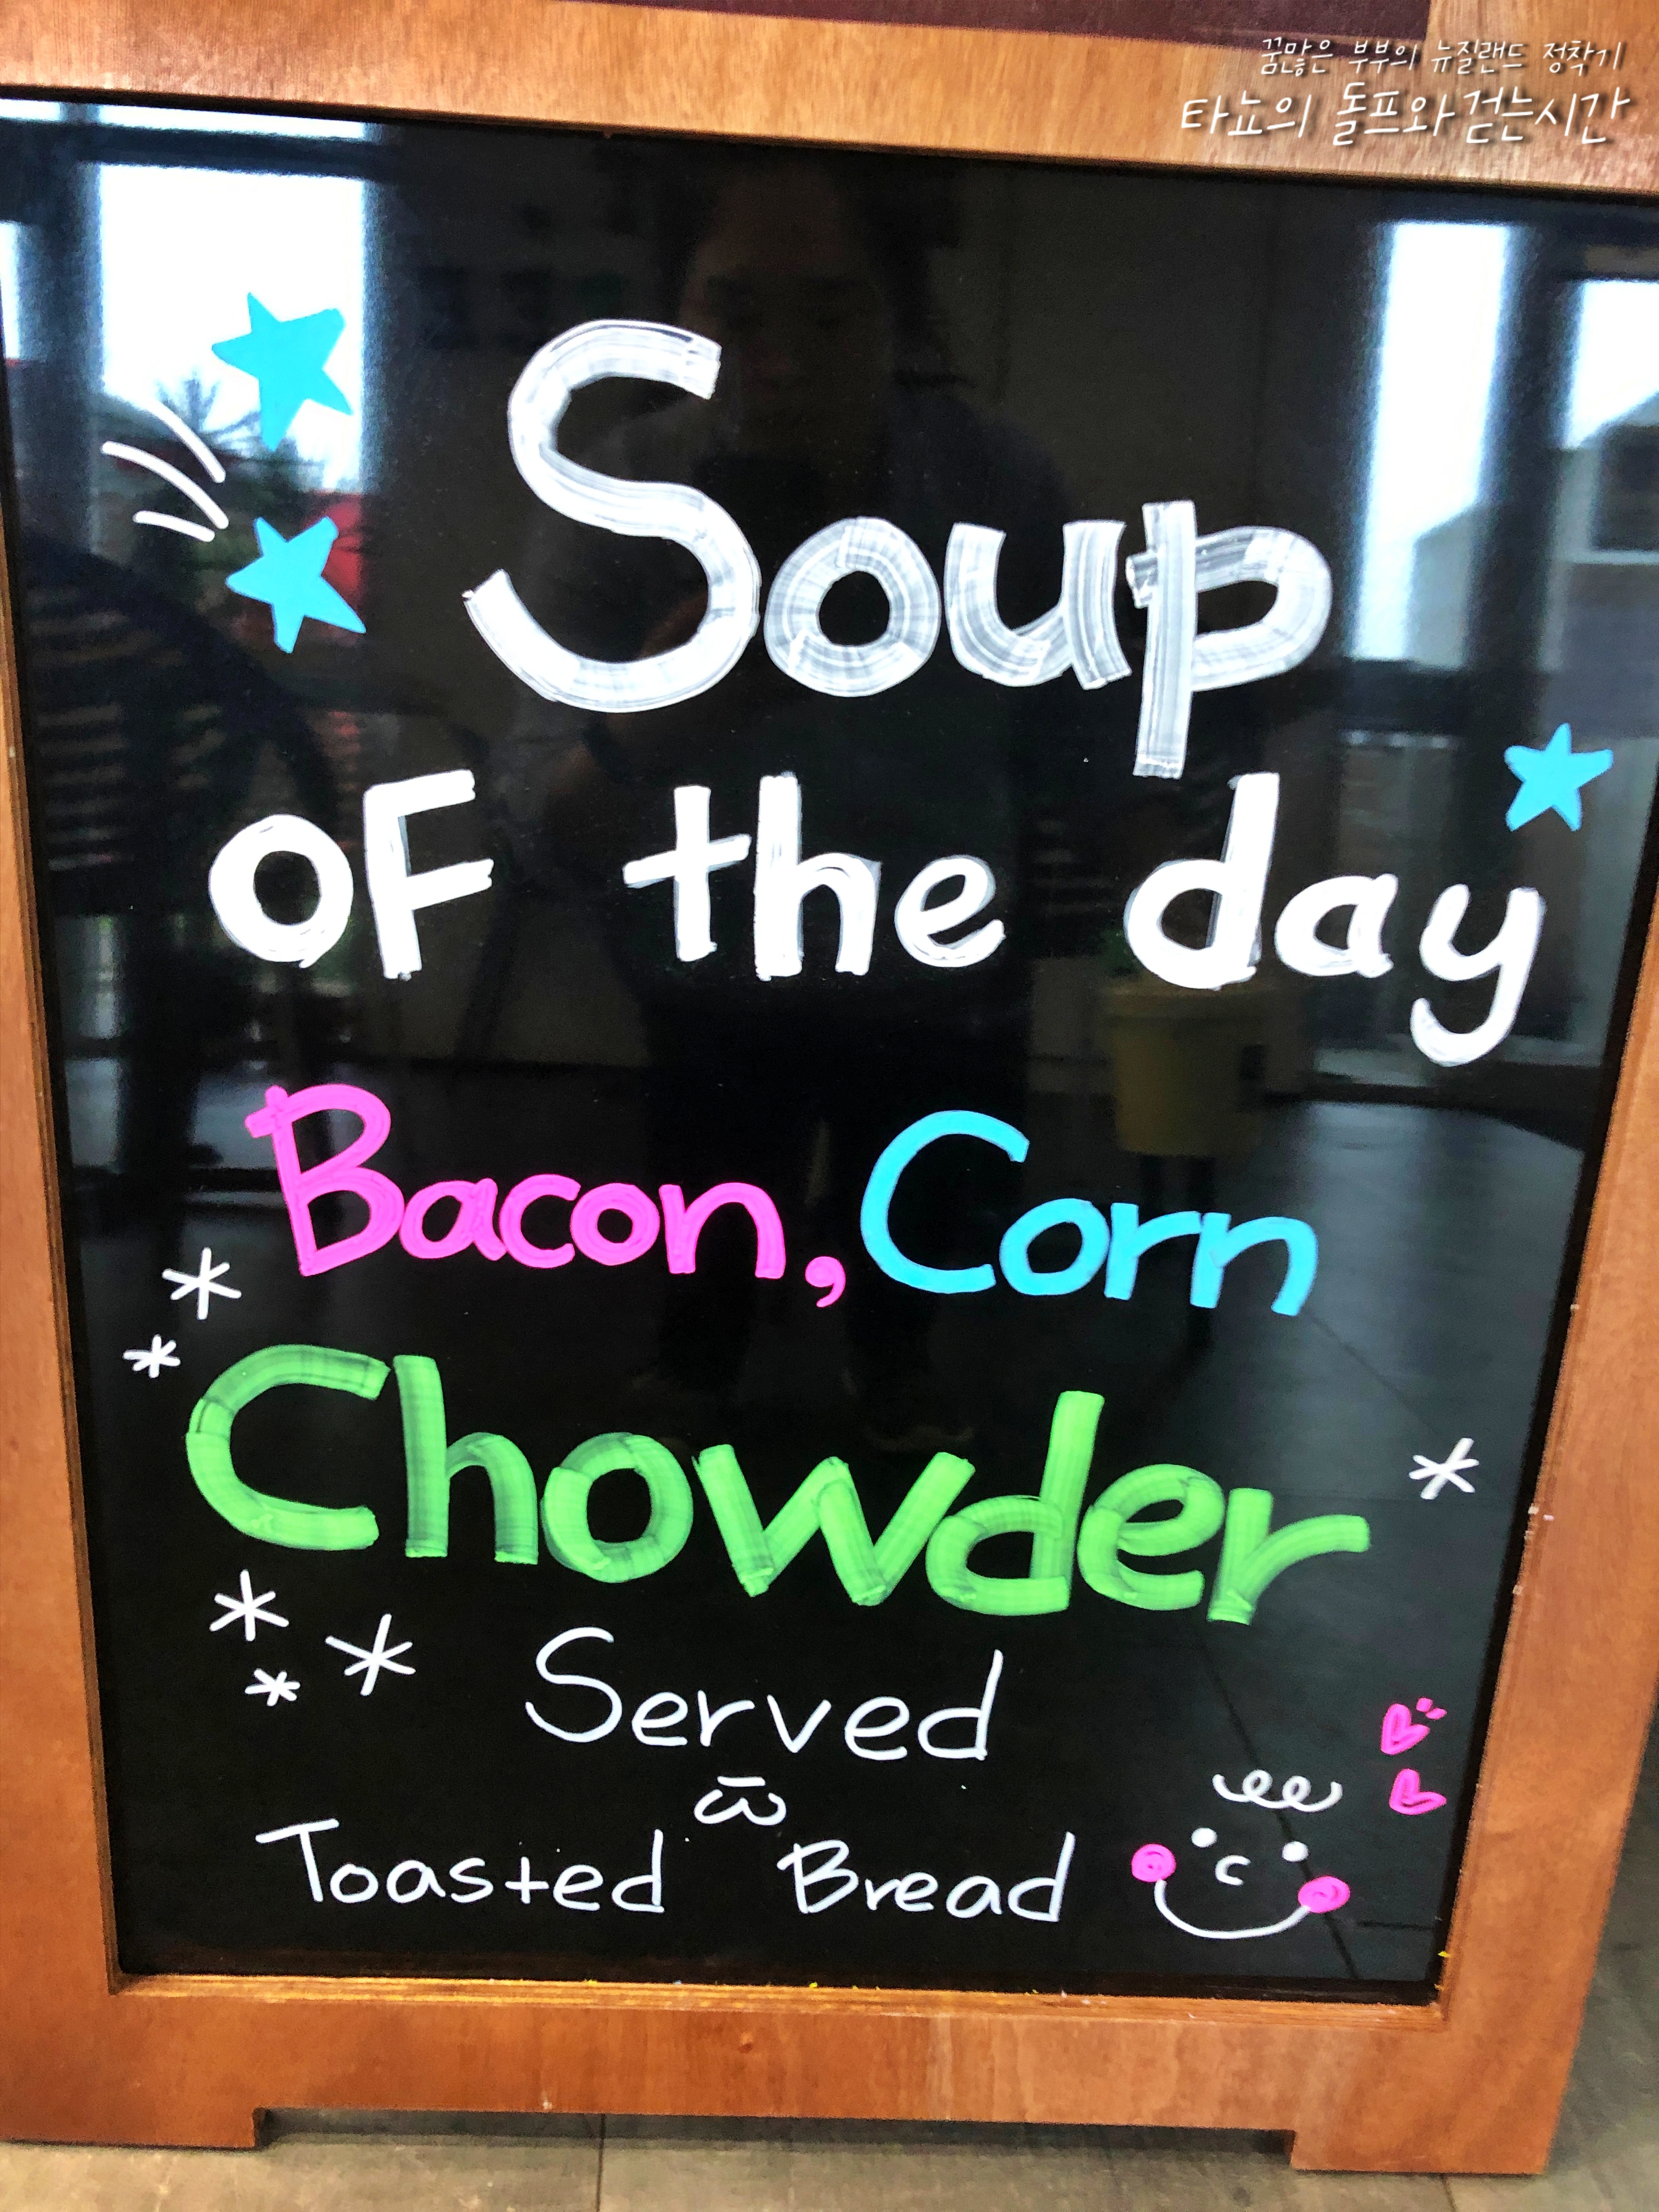 꿈많은 부부의 뉴질랜드 정착기
타뇨의 돌프와 걷는시간
Soup
OF the day
Bacon, Corn
Chowder
Served
w̄
Toasted Bread